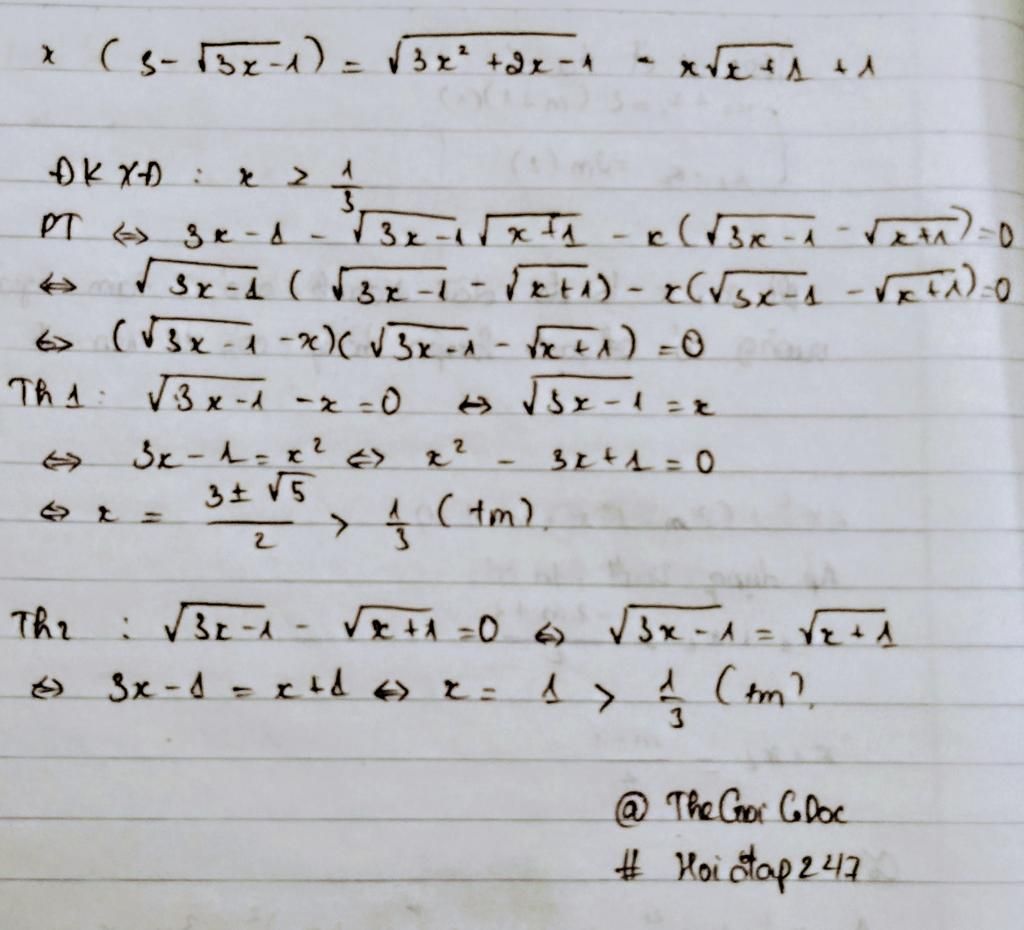 x (3-√(3x-1)) = √(3x²+2x-1) - x√(x+1) +1
ĐKXĐ : x ≥ 1/3
PT ⇔ 3x-1 - √(3x-1)√(x+1) - x(√(3x-1) - √(x+1))=0
⇔ √(3x-1) (√(3x-1) - √(x+1)) - x(√(3x-1) - √(x+1))=0
⇔ (√(3x-1) -x)(√(3x-1) - √(x+1)) =0
Th1: √(3x-1) -x =0 ⇔ √(3x-1) = x
⇔ 3x-1 = x² ⇔ x² - 3x+1 = 0
⇔ x = (3±√5)/2 > 1/3 (tm).
Th2 : √(3x-1) - √(x+1) =0 ⇔ √(3x-1) = √(x+1)
⇔ 3x-1 = x+1 ⇔ x = 1 > 1/3 (tm).
@ TheGioiCoDoc
# Hoidap247